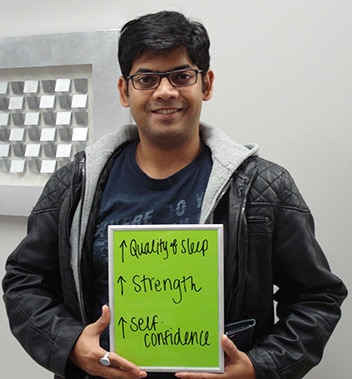 WHERE DO
↑ Quality of Sleep
↑ Strength
↑ Self-
confidence